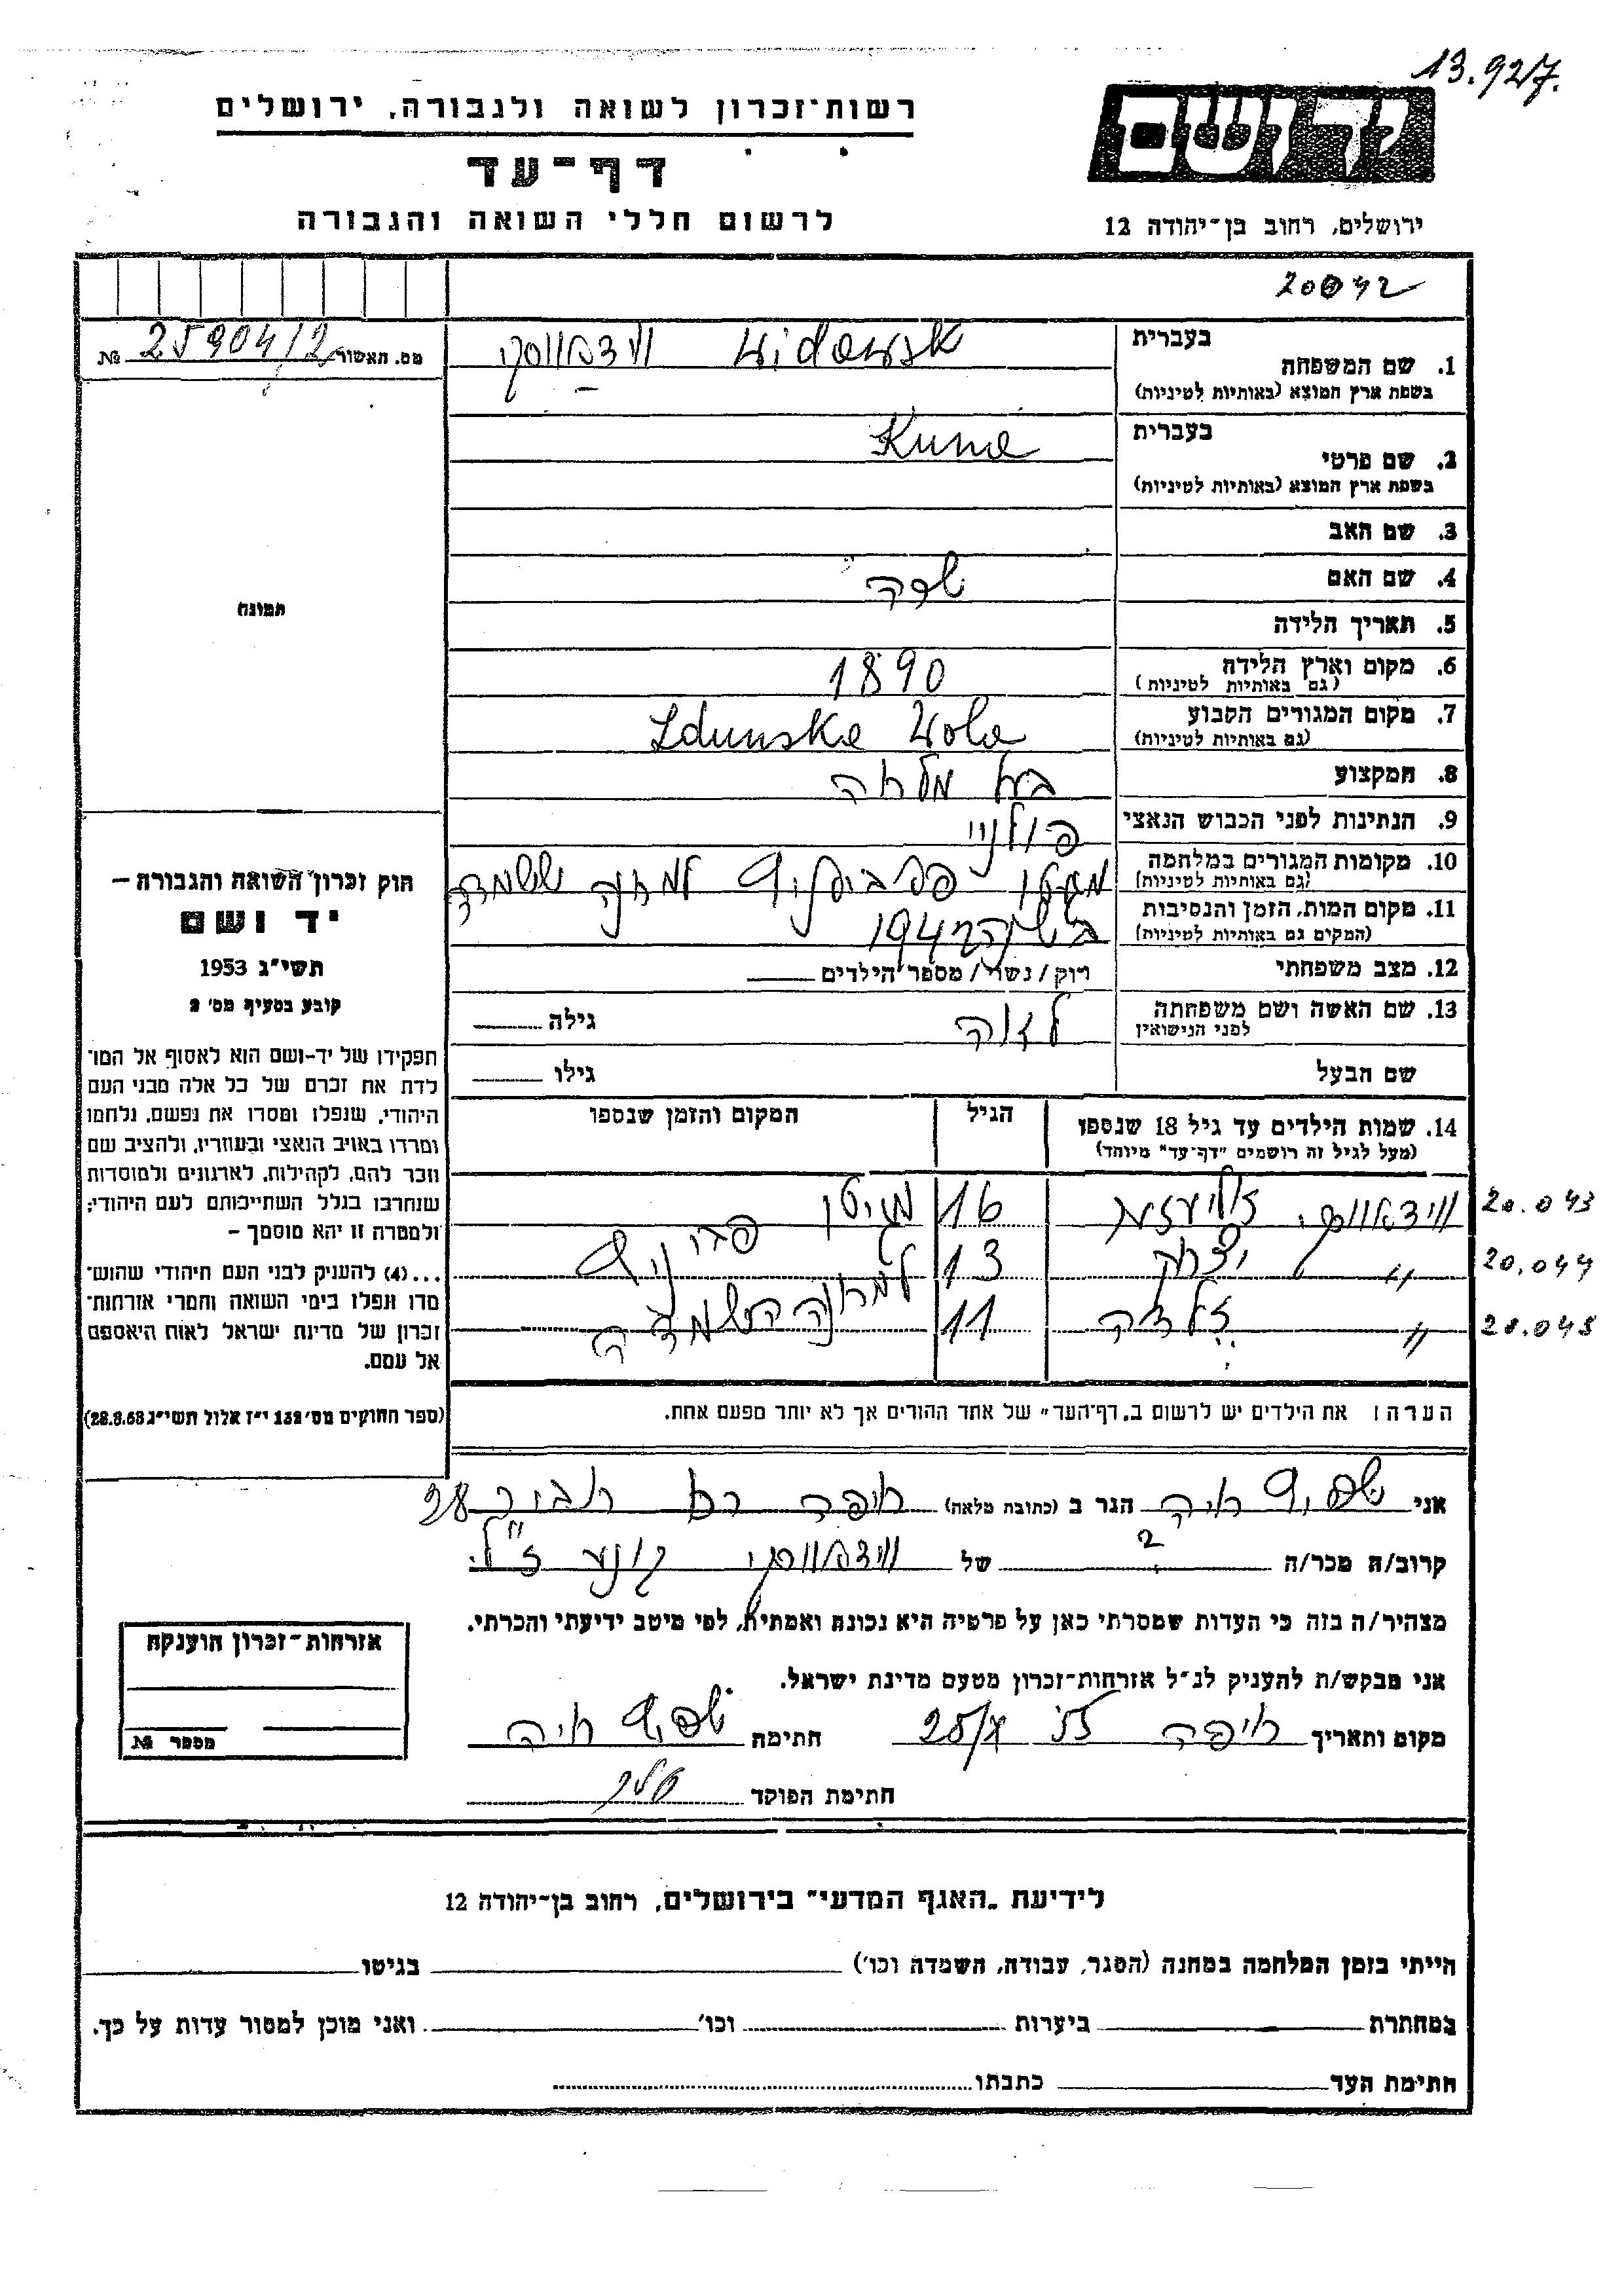 13.927.
יד ושם
רשות־זכרון לשואה ולגבורה, ירושלים
דף־עד
לרשום חללי השואה והגבורה
ירושלים, רחוב בן־יהודה 12
20042
מס. תאשור 25904/2 №
בעברית
1. שם המשפחה
בשפת ארץ המוצא (באותיות לטיניות)
Widawsk ווידאווסקי
בעברית
2. שם פרטי
בשפת ארץ המוצא (באותיות לטיניות)
Kuna
3. שם האב
4. שם האם
שרה
5. תאריך הלידה
6. מקום וארץ הלידה
(גם באותיות לטיניות)
1890
7. מקום המגורים הקבוע
(גם באותיות לטיניות)
Zdunska Wola
8. המקצוע
בעל מלאכה
9. הנתינות לפני הכבוש הנאצי
פולני
10. מקומות המגורים במלחמה
(גם באותיות לטיניות)
למחנה
11. מקום המות, הזמן והנסיבות
(המקום גם באותיות לטיניות)
1942
12. מצב משפחתי
רוק / נשוי / מספר הילדים
13. שם האשה ושם משפחתה
לפני הנישואין
גילה
שם הבעל
גילו
14. שמות הילדים עד גיל 18 שנספו
(מעל לגיל זה רושמים "דף־עד" מיוחד)
הגיל
המקום והזמן שנספו
ווידאווסקי 16 מגיטו 20.043
" יצחק 13 20.044
" זלדה 11 למחנה השמדה 20.045
הערה: את הילדים יש לרשום ב„דף־העד" של אחד ההורים אך לא יותר מפעם אחת.
תמונה
חוק זכרון השואה והגבורה —
יד ושם
תשי"ג 1953
קובע בסעיף מס' 2
תפקידו של יד-ושם הוא לאסוף אל המו־
לדת את זכרם של כל אלה מבני העם
היהודי, שנפלו ומסרו את נפשם, נלחמו
ומרדו באויב הנאצי ובעוזריו, ולהציב שם
וזכר להם, לקהילות, לארגונים ולמוסדות
שנחרבו בגלל השתייכותם לעם היהודי;
ולמטרה זו יהא מוסמך —
...(4) להעניק לבני העם היהודי שהוש־
מדו ונפלו בימי השואה והמרי אזרחות־
זכרון של מדינת ישראל לאות היאספם
אל עמם.
(ספר החוקים מס' 132 י"ז אלול תשי"ג 28.8.53)
אני חיה הגר ב (כתובת מלאה) חיפה 28
קרוב/ה מכר/ה של ווידאווסקי קונע ז"ל
מצהיר/ה בזה כי העדות שמסרתי כאן על פרטיה היא נכונה ואמתית, לפי מיטב ידיעתי והכרתי.
אני מבקש/ת להעניק לנ"ל אזרחות־זכרון מטעם מדינת ישראל.
מקום ותאריך חיפה חתימה
חתימת הפוקד
אזרחות־זכרון הוענקה
מספר №
לידיעת „האגף המדעי" בירושלים, רחוב בן־יהודה 12
הייתי בזמן המלחמה במחנה (הסגר, עבודה, השמדה וכו') בגיטו
במחתרת ביערות וכו' ואני מוכן למסור עדות על כך.
חתימת העד כתבתו